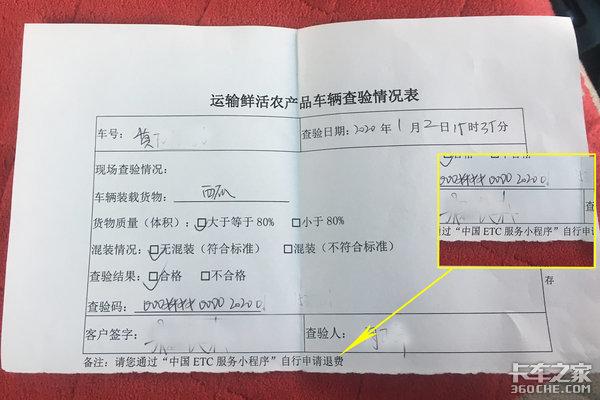 运输鲜活农产品车辆查验情况表
车号：黄
查验日期：2020年1月2日15时35分
现场查验情况：
车辆装载货物：西瓜
货物质量（体积）：□大于等于80% □小于80%
混装情况：□无混装（符合标准） □混装（不符合标准）
查验结果：□合格 □不合格
查验码：
存
客户签字：
查验人：
备注：请您通过“中国ETC服务小程序”自行申请退费
合格 不合格
查
过“中国ETC服务小程序”自行申请
卡车之家
360che.com